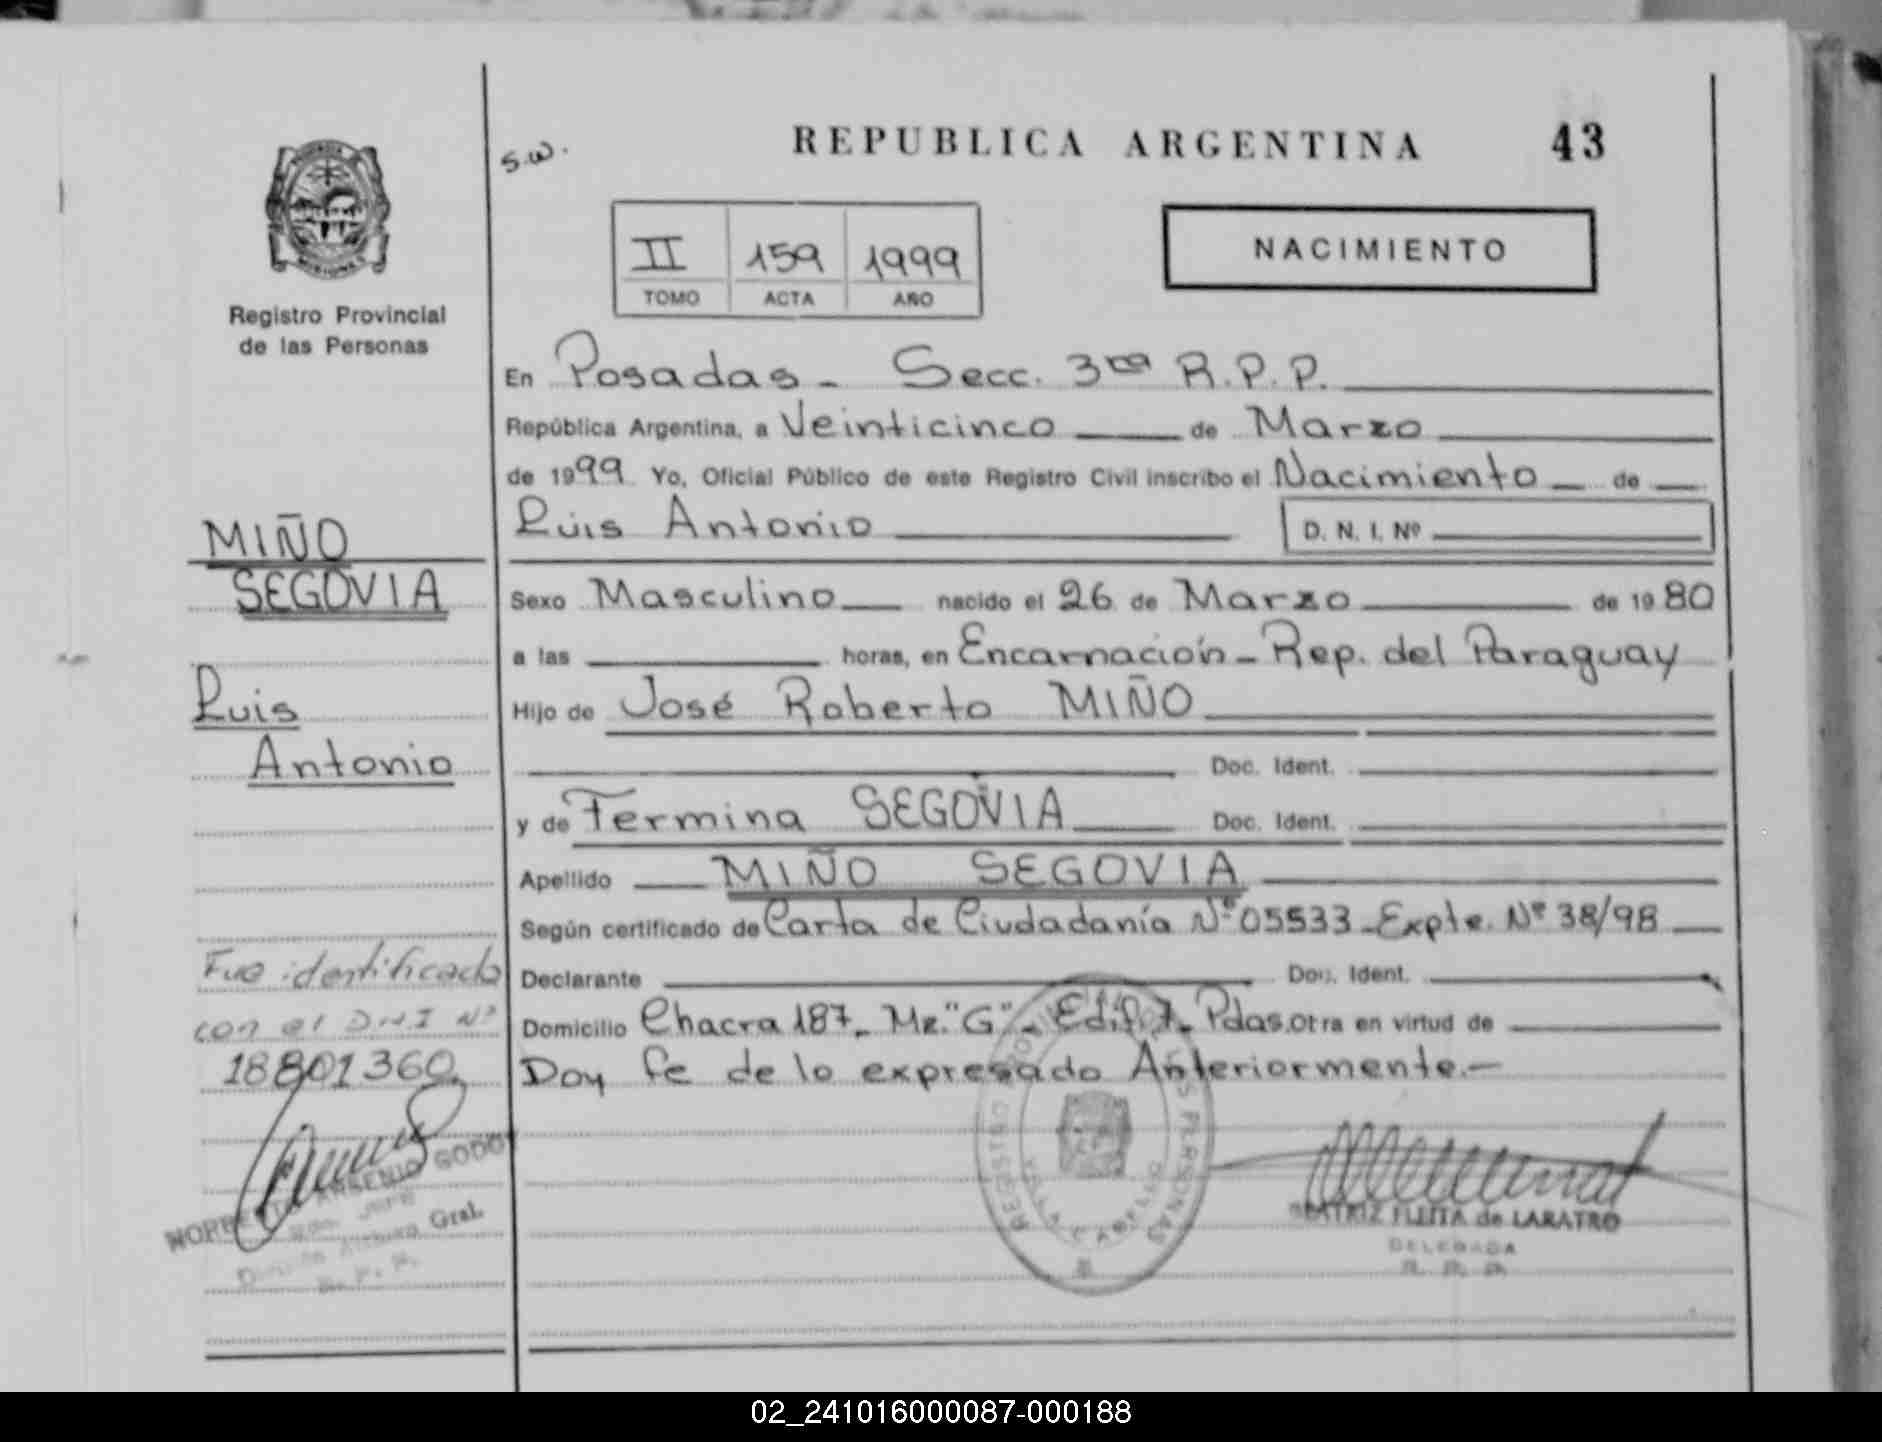 REPUBLICA ARGENTINA 43
s.w.
II 159 1999
TOMO ACTA AÑO
NACIMIENTO
PROVINCIA DE
MISIONES
Registro Provincial
de las Personas
MIÑO
SEGOVIA
Luis
Antonio
Fue identificado
con el DNI Nº
18801360
ARSENIO GODOY
Gral.
En Posadas - Secc. 3ra R.P.P.
República Argentina, a Veinticinco de Marzo
de 1999 Yo, Oficial Público de este Registro Civil inscribo el Nacimiento de
Luis Antonio D. N. I. Nº
Sexo Masculino nacido el 26 de Marzo de 1980
a las horas, en Encarnación - Rep. del Paraguay
Hijo de José Roberto MIÑO
Doc. Ident.
y de Fermina SEGOVIA Doc. Ident.
Apellido MIÑO SEGOVIA
Según certificado de Carta de Ciudadanía Nº 05533 - Expte. Nº 38/98
Declarante Doc. Ident.
Domicilio Chacra 187 - Mz. "G" - Edif. 7 - Pdas. Otra en virtud de
Doy fe de lo expresado Anteriormente.-
REGISTRO PROVINCIAL DE LAS PERSONAS
VILLA CABELLO
BEATRIZ FLEITA de LARATRO
DELEGADA
R. P. P.
02_241016000087-000188